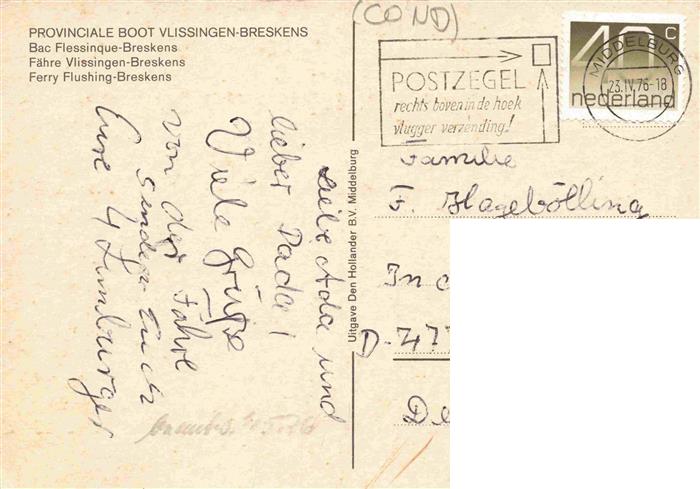 PROVINCIALE BOOT VLISSINGEN-BRESKENS
Bac Flessinque-Breskens
Fähre Vlissingen-Breskens
Ferry Flushing-Breskens
(COND)
POSTZEGEL
rechts boven in de hoek
vlugger verzending!
40 c
nederland
MIDDELBURG
23.IV.76-18
Liebe Ada und
lieber Dada!
Viele Grüße
von der Fähre
senden Euch
Eure 4 Limburger
Uitgave Den Hollander B.V. Middelburg
Familie
F. Hagebölling
In
D-477
De